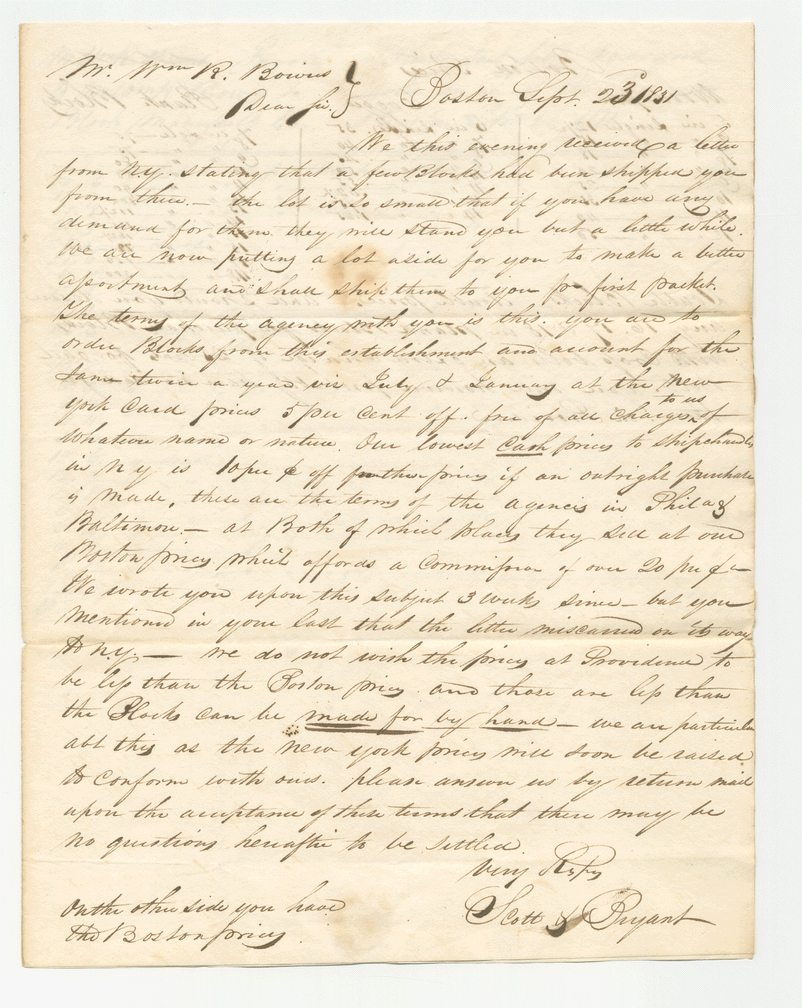 Mr. Wm R. Bowers
Dear Sir. Boston Sept. 23d 1831
We this evening received a letter
from N.Y. stating that a few Blocks had been shipped you
from there. — the lot is so small that if you have any
demand for them they will stand you but a little while.
We are now putting a lot aside for you to make a better
assortment and shall ship them to you pr first packet.
The terms of the agency with you is this. you are to
order Blocks from this establishment and account for the
same twice a year viz July & January at the New
York Card prices 5 per cent off. free of all charges to us of
whatever name or nature. Our lowest Cash prices to Shipchandlers
in N Y is 10 per ct off further prices if an outright purchase
is made, these are the terms of the agencies in Phila &
Baltimore. — at Both of which places they sell at our
Boston prices which affords a Commission of over 20 per ct —
We wrote you upon this subject 3 weeks since — but you
mentioned in your last that the letter miscarried on its way
to N.Y. — we do not wish the prices at Providence to
be less than the Boston prices and those are less than
the Blocks can be made for by hand — we are particular
abt this as the New York prices will soon be raised
to conform with ours. please answer us by return mail
upon the acceptance of these terms that there may be
no questions hereafter to be settled.
Very Respy
Scott & Bryant
On the other side you have
the Boston prices.